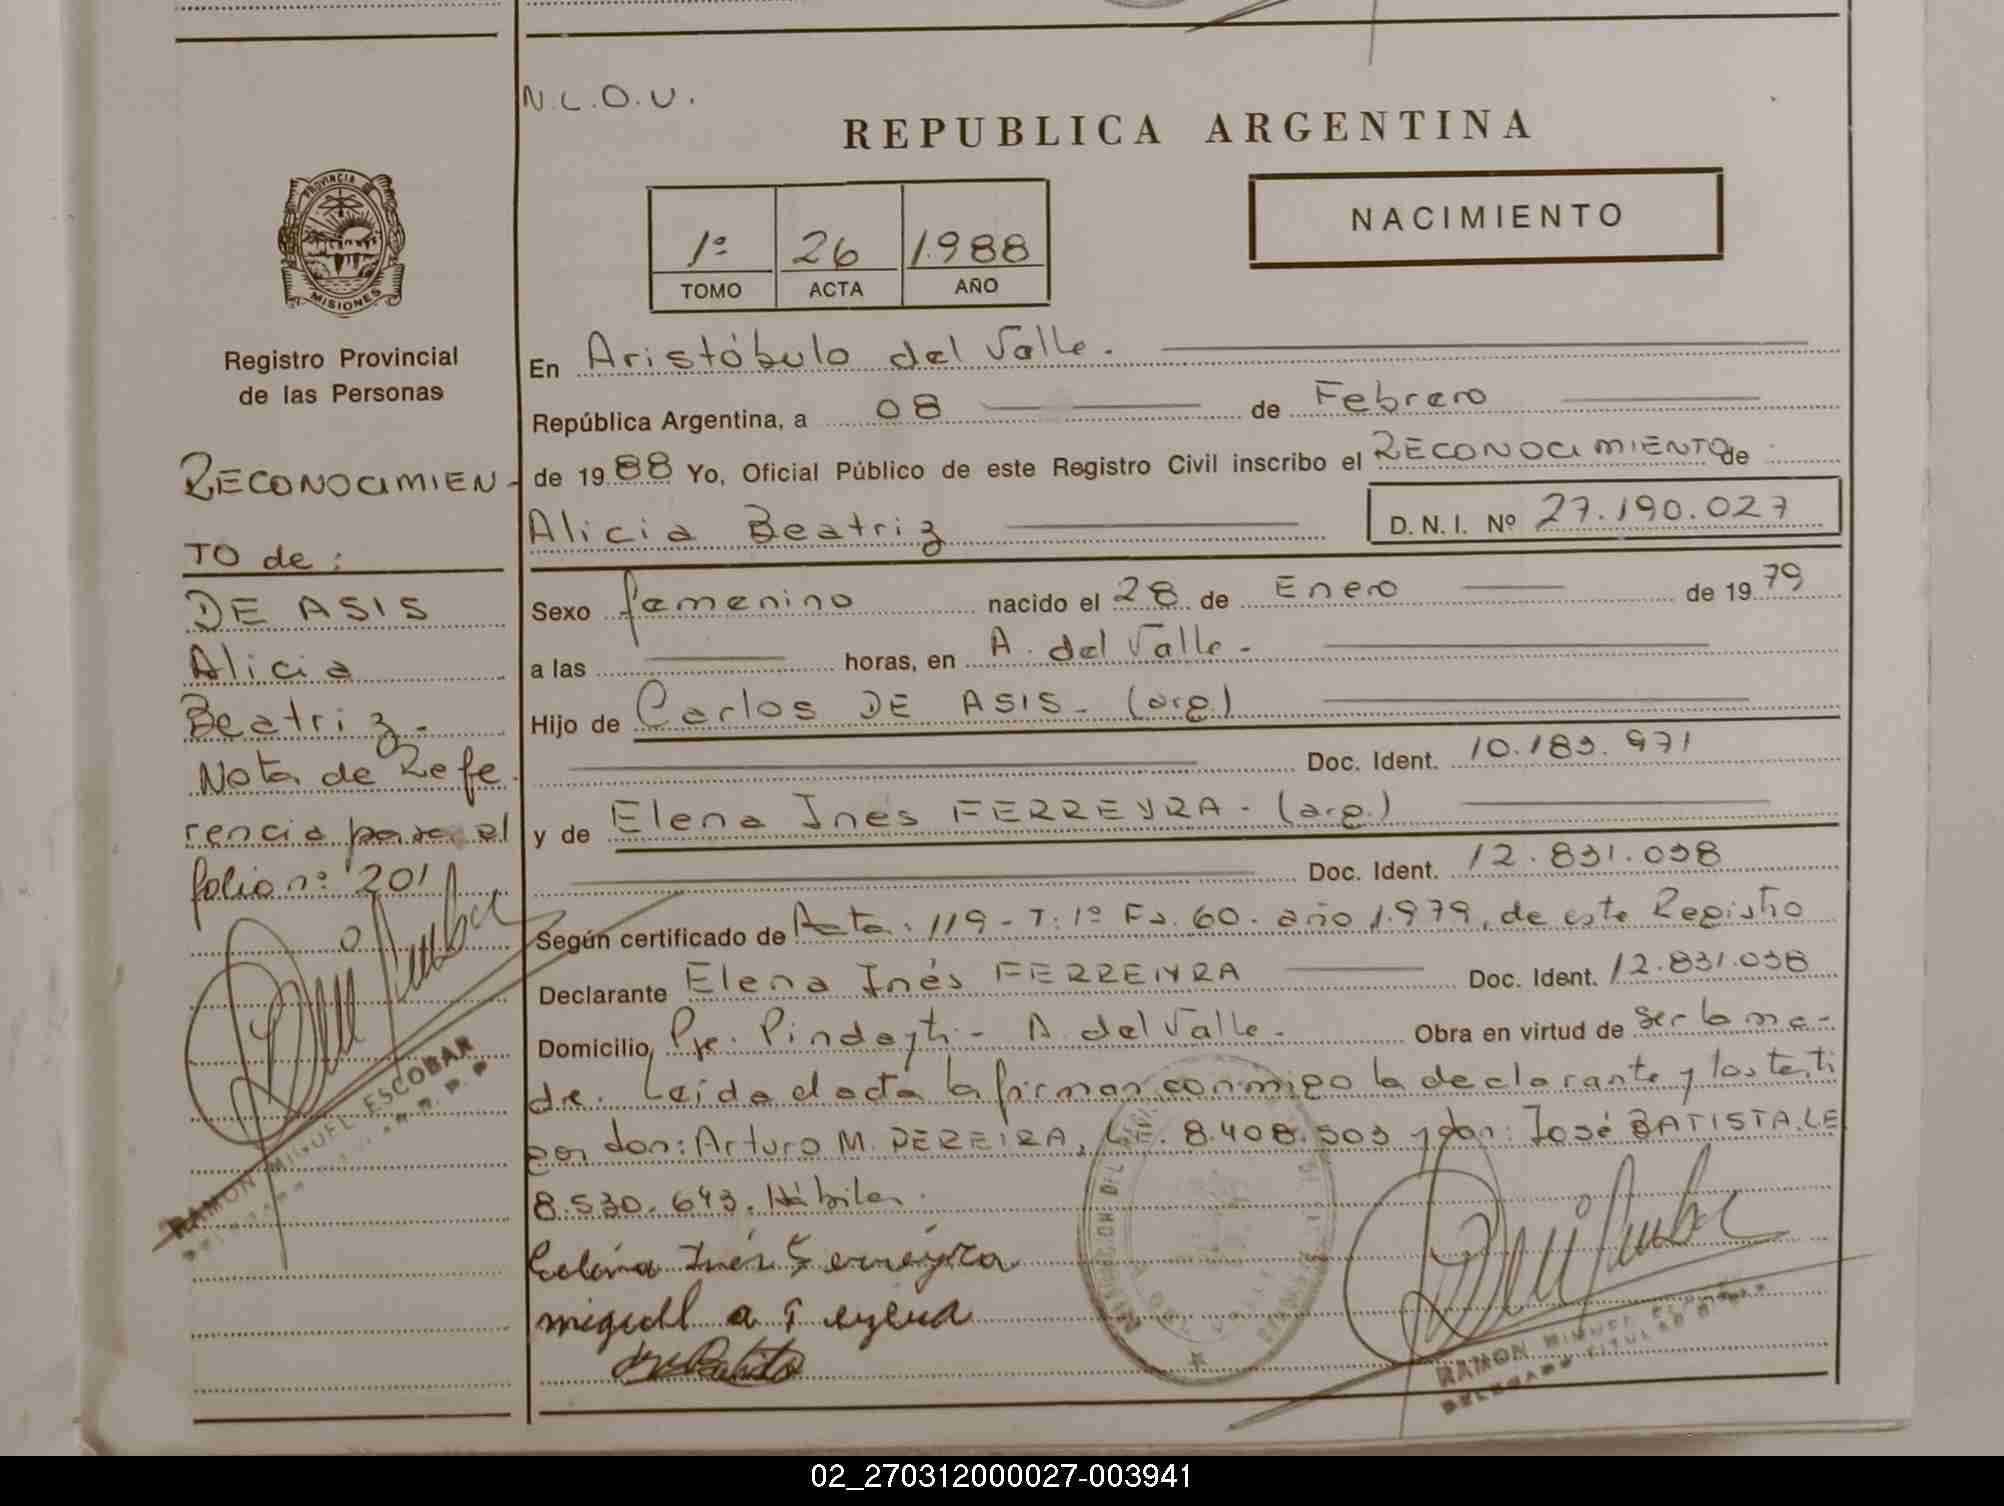 N.L.O.U.
REPUBLICA ARGENTINA
NACIMIENTO
1º 26 1.988
TOMO ACTA AÑO
PROVINCIA
MISIONES
Registro Provincial
de las Personas
RECONOCIMIEN-
TO de:
DE ASIS
Alicia
Beatriz.-
Nota de Refe
rencia para el
folio nº 201
RAMON MIGUEL ESCOBAR
En Aristóbulo del Valle.
República Argentina, a 08 de Febrero
de 1988 Yo, Oficial Público de este Registro Civil inscribo el RECONOCIMIENTO de
Alicia Beatriz D.N.I. Nº 27.190.027
Sexo femenino nacido el 28 de Enero de 1979
a las horas, en A. del Valle.-
Hijo de Carlos DE ASIS.- (arg.)
Doc. Ident. 10.183.971
y de Elena Inés FERREYRA.- (arg.)
Doc. Ident. 12.831.038
Según certificado de Acta. 119 - T: 1º Fº. 60. año 1.979, de este Registro
Declarante Elena Inés FERREYRA Doc. Ident. 12.831.038
Domicilio, Pje. Pindayti - A. del Valle.- Obra en virtud de ser la ma-
dre. Leída el acta la firman conmigo la declarante y los testi
gos don: Arturo M. PEREIRA, L.E. 8.408.503 y don: José BATISTA. LE
8.530.643. Hábiles.
Elena Inés Ferreyra
RAMON MIGUEL
02_270312000027-003941